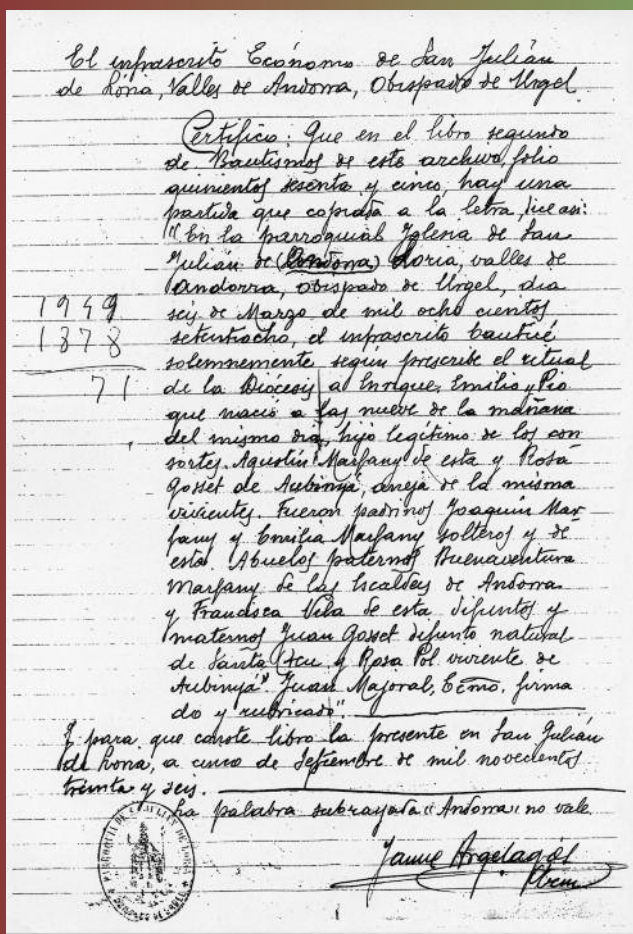 El infrascrito Ecónomo de San Julián
de Loria, Valles de Andorra, Obispado de Urgel
Certifico: Que en el libro segundo
de Bautismos de este archivo, folio
quinientos sesenta y cinco, hay una
partida que copiada a la letra, dice asi:
"En la parroquial Iglesia de San
Julián de (Andorra) Loria, valles de
Andorra, obispado de Urgel, dia
seis de Marzo de mil ocho cientos
setentiocho, el infrascrito bauticé
solemnemente según prescribe el ritual
de la Diócesis a Enrique, Emilio, Pio
que nació a las nueve de la mañana
del mismo dia, hijo legítimo de los con
sortes Agustín Marfany de esta y Rosa
Gosset de Aubinyá, aneja de la misma
vivientes. Fueron padrinos Joaquin Mar-
fany y Emilia Marfany solteros y de
esta. Abuelos paternos Buenaventura
Marfany de las Escaldes de Andorra
y Francisca Vila de esta difuntos y
maternos Juan Gosset difunto natural
de Santa y Rosa Pol viviente de
Aubinyá". Juan Majoral, Ecmo. firma
do y rubricado"
Y para que conste libro la presente en San Julián
de Loria, a cinco de Septiembre de mil novecientos
treinta y seis.
La palabra subrayada "Andorra" no vale.
Jaume Argelagós
1949
1878
71